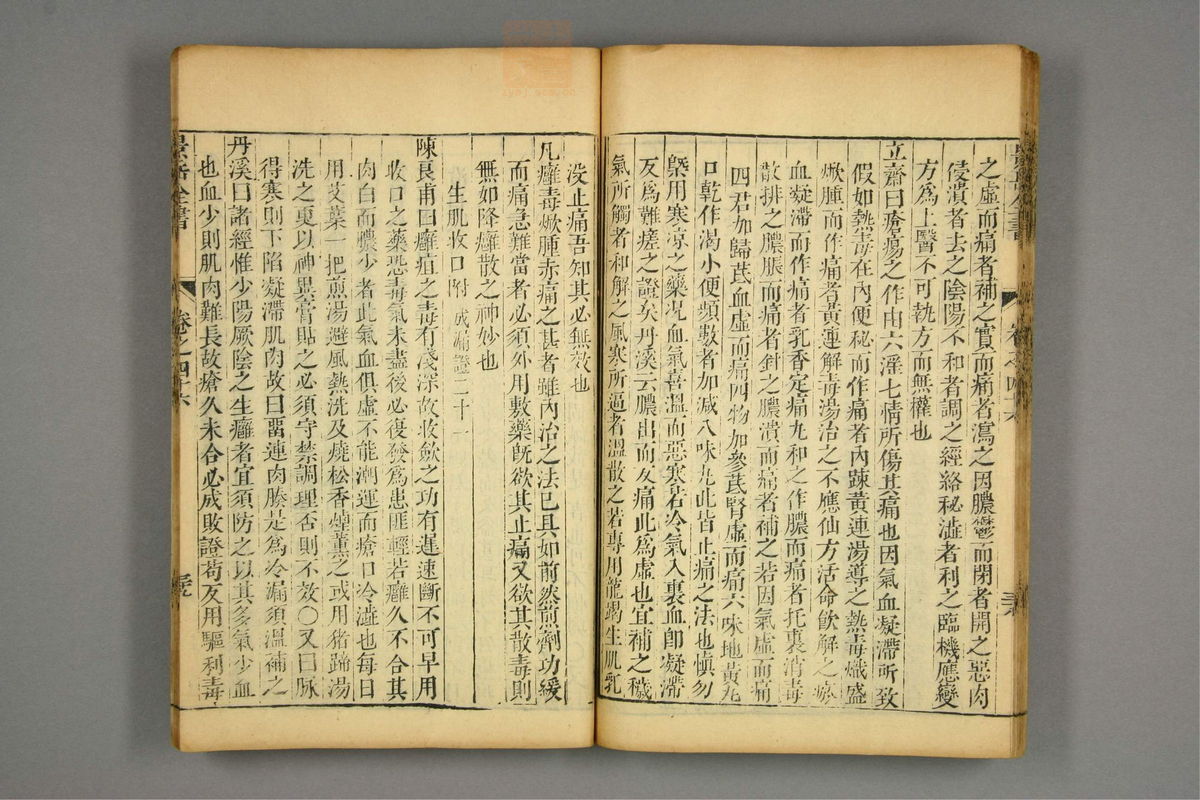 景岳全書
卷之四十六
三六
之虛而痛者補之實而痛者瀉之因膿鬱而閉者開之惡肉
侵潰者去之陰陽不和者調之經絡秘澁者利之臨機應變
方爲上醫不可執方而無權也
立齋曰瘡瘍之作由六淫七情所傷其痛也因氣血凝滯所致
假如熱毒在內便秘而作痛者內踈黃連湯導之熱毒熾盛
焮腫而作痛者黃連解毒湯治之不應仙方活命飲解之瘀
血凝滯而作痛者乳香定痛丸和之作膿而痛者托裏消毒
散排之膿脹而痛者針之膿潰而痛者補之若因氣虛而痛
四君加歸芪血虛而痛四物加參芪腎虛而痛六味地黃丸
口乾作渴小便頻數者加减八味丸此皆止痛之法也慎勿
槩用寒凉之藥况血氣喜溫而惡寒若冷氣入裏血卽凝滯
反爲難瘥之證矣丹溪云膿出而反痛此爲虛也宜補之穢
氣所觸者和解之風寒所逼者溫散之若專用龍竭生肌乳
没止痛吾知其必無效也
凡癰毒焮腫赤痛之甚者雖內治之法已具如前然煎劑功緩
而痛急難當者必須外用敷藥旣欲其止痛又欲其散毒則
無如降癰散之神妙也
生肌收口附 成漏證二十一
陳良甫曰癰疽之毒有淺深故收斂之功有遲速斷不可早用
收口之藥恐毒氣未盡後必復發爲患匪輕若癰久不合其
肉白而膿少者此氣血俱虛不能潮運而瘡口冷澁也每日
用艾葉一把煎湯避風熱洗及燒松香煙薰之或用猪蹄湯
洗之更以神異膏貼之必須守禁調理否則不效○又曰脉
得寒則下陷凝滯肌肉故曰留連肉腠是爲冷漏須溫補之
丹溪曰諸經惟少陽厥陰之生癰者宜須防之以其多氣少血
也血少則肌肉難長故瘡久未合必成敗證苟反用驅利毒
景岳全書
卷之四十六